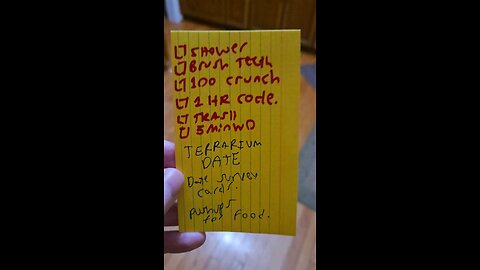 SHOWER
Brush Teeth
100 crunch
1 HR code.
TRASH
5 min WO
TERRARIUM
DATE
Date survey
cards.
Pushups
for food.